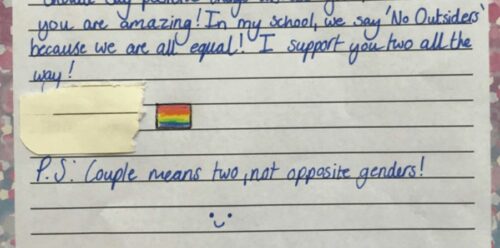 you are amazing! In my school, we say 'No Outsiders'
because we are all equal! I support you two all the
way!
P.S: Couple means two, not opposite genders!